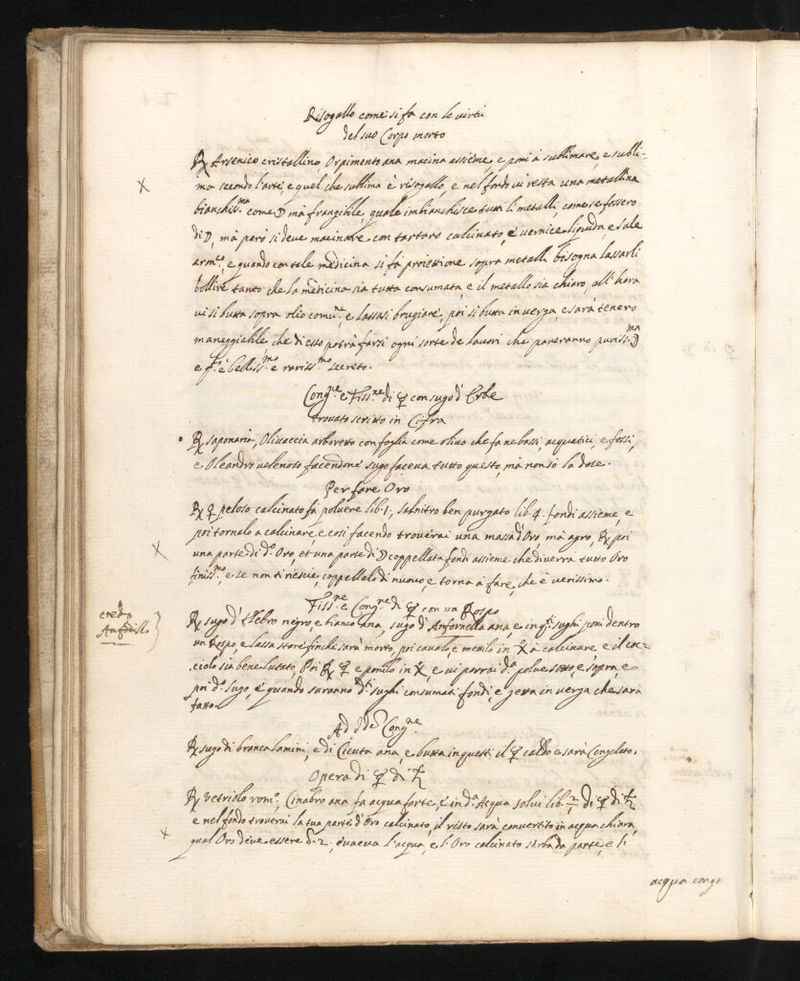 Risogallo come si fa con le virtù
del suo Corpo morto
℞ Arsenico cristallino, Orpimento ana macina assieme, e poni à sublimare, e subli-
ma secondo l'arte, e quel che sublima è risogallo, e nel fondo ui resta una metallina
bianchiss.ma come ☽ mà frangibile, quale imbianchisce tutti li metalli, come se fossero
di ☽, mà però si deve macinare con tartaro calcinato, e vernice liquida e sale
arm.co, e quando con tale medicina si fà proiettione sopra metalli bisogna lassarli
bollire tanto che la medicina sia tutta consumata, e il metallo sia chiaro, all'hora
ui si butta sopra olio comu.ne, e lassasi brugiare, poi si butta in uerga, e sarà tenero
maneggiabile che di esso potrà farsi ogni sorte de lauori che pareranno puriss.ma ☽
e q.to è belliss.mo e rariss.mo secreto.
Cong.ne e Fiss.ne di ☿ con sugo d'Erbe
trouato scritto in Cifra
℞ saponaria, Oliuaccia arboretto con foglia come oliuo che fa ne bassi, acquatici, e fossi,
e Oleandro uelenoso facendone sugo faceua tutto questo, mà non sò la dose.
Per fare Oro
℞ ☿ peloso calcinato fà poluere lib. 1, salnitro ben purgato lib. 4. fondi assieme, e
poi tornalo a calcinare, e così facendo trouerai una massa d'Oro mà agro, ℞ poi
una parte di d.o Oro, et una parte di ☽ coppellata fondi assieme che diuerrà tutto Oro
finiss.mo, e se non ti riescie, coppellalo di nuouo, e torna à fare, che è uerissimo.
Fiss.ne e Cong.ne di ☿ con un Rospo
credo
Anfodillo
℞ sugo d'Elebro negro e bianco ana, sugo d'Anfornella ana, e in q.ti sughi poni dentro
un Rospo, e lassa stare finche sarà morto, poi caualo, e mettilo in à calcinare, e il
ciolo sia bene lutato, Poi ℞ ☿ e ponilo in, e ui porrai d.a poluere sotto, e sopra, e
poi d.o sugo, e quando saranno d.ti sughi consumati fondi, e getta in uerga che sarà
fatto.
Cong.ne
℞ sugo di branca, e di Cicuta ana, e butta in questi il ☿ caldo e sarà Congelato.
Opera di ☿ di ♄
℞ vetriolo rom.o, Cinabro ana fa acqua forte, e in d.a Acqua solui lib. di ☿ di ♄
e nel fondo trouerai la tua parte d'Oro calcinato, il resto sarà conuertito in acqua chiara,
qual Oro deue essere d. 2, euacua l'acqua, e l'Oro calcinato serba da parte, e l'
acqua conge